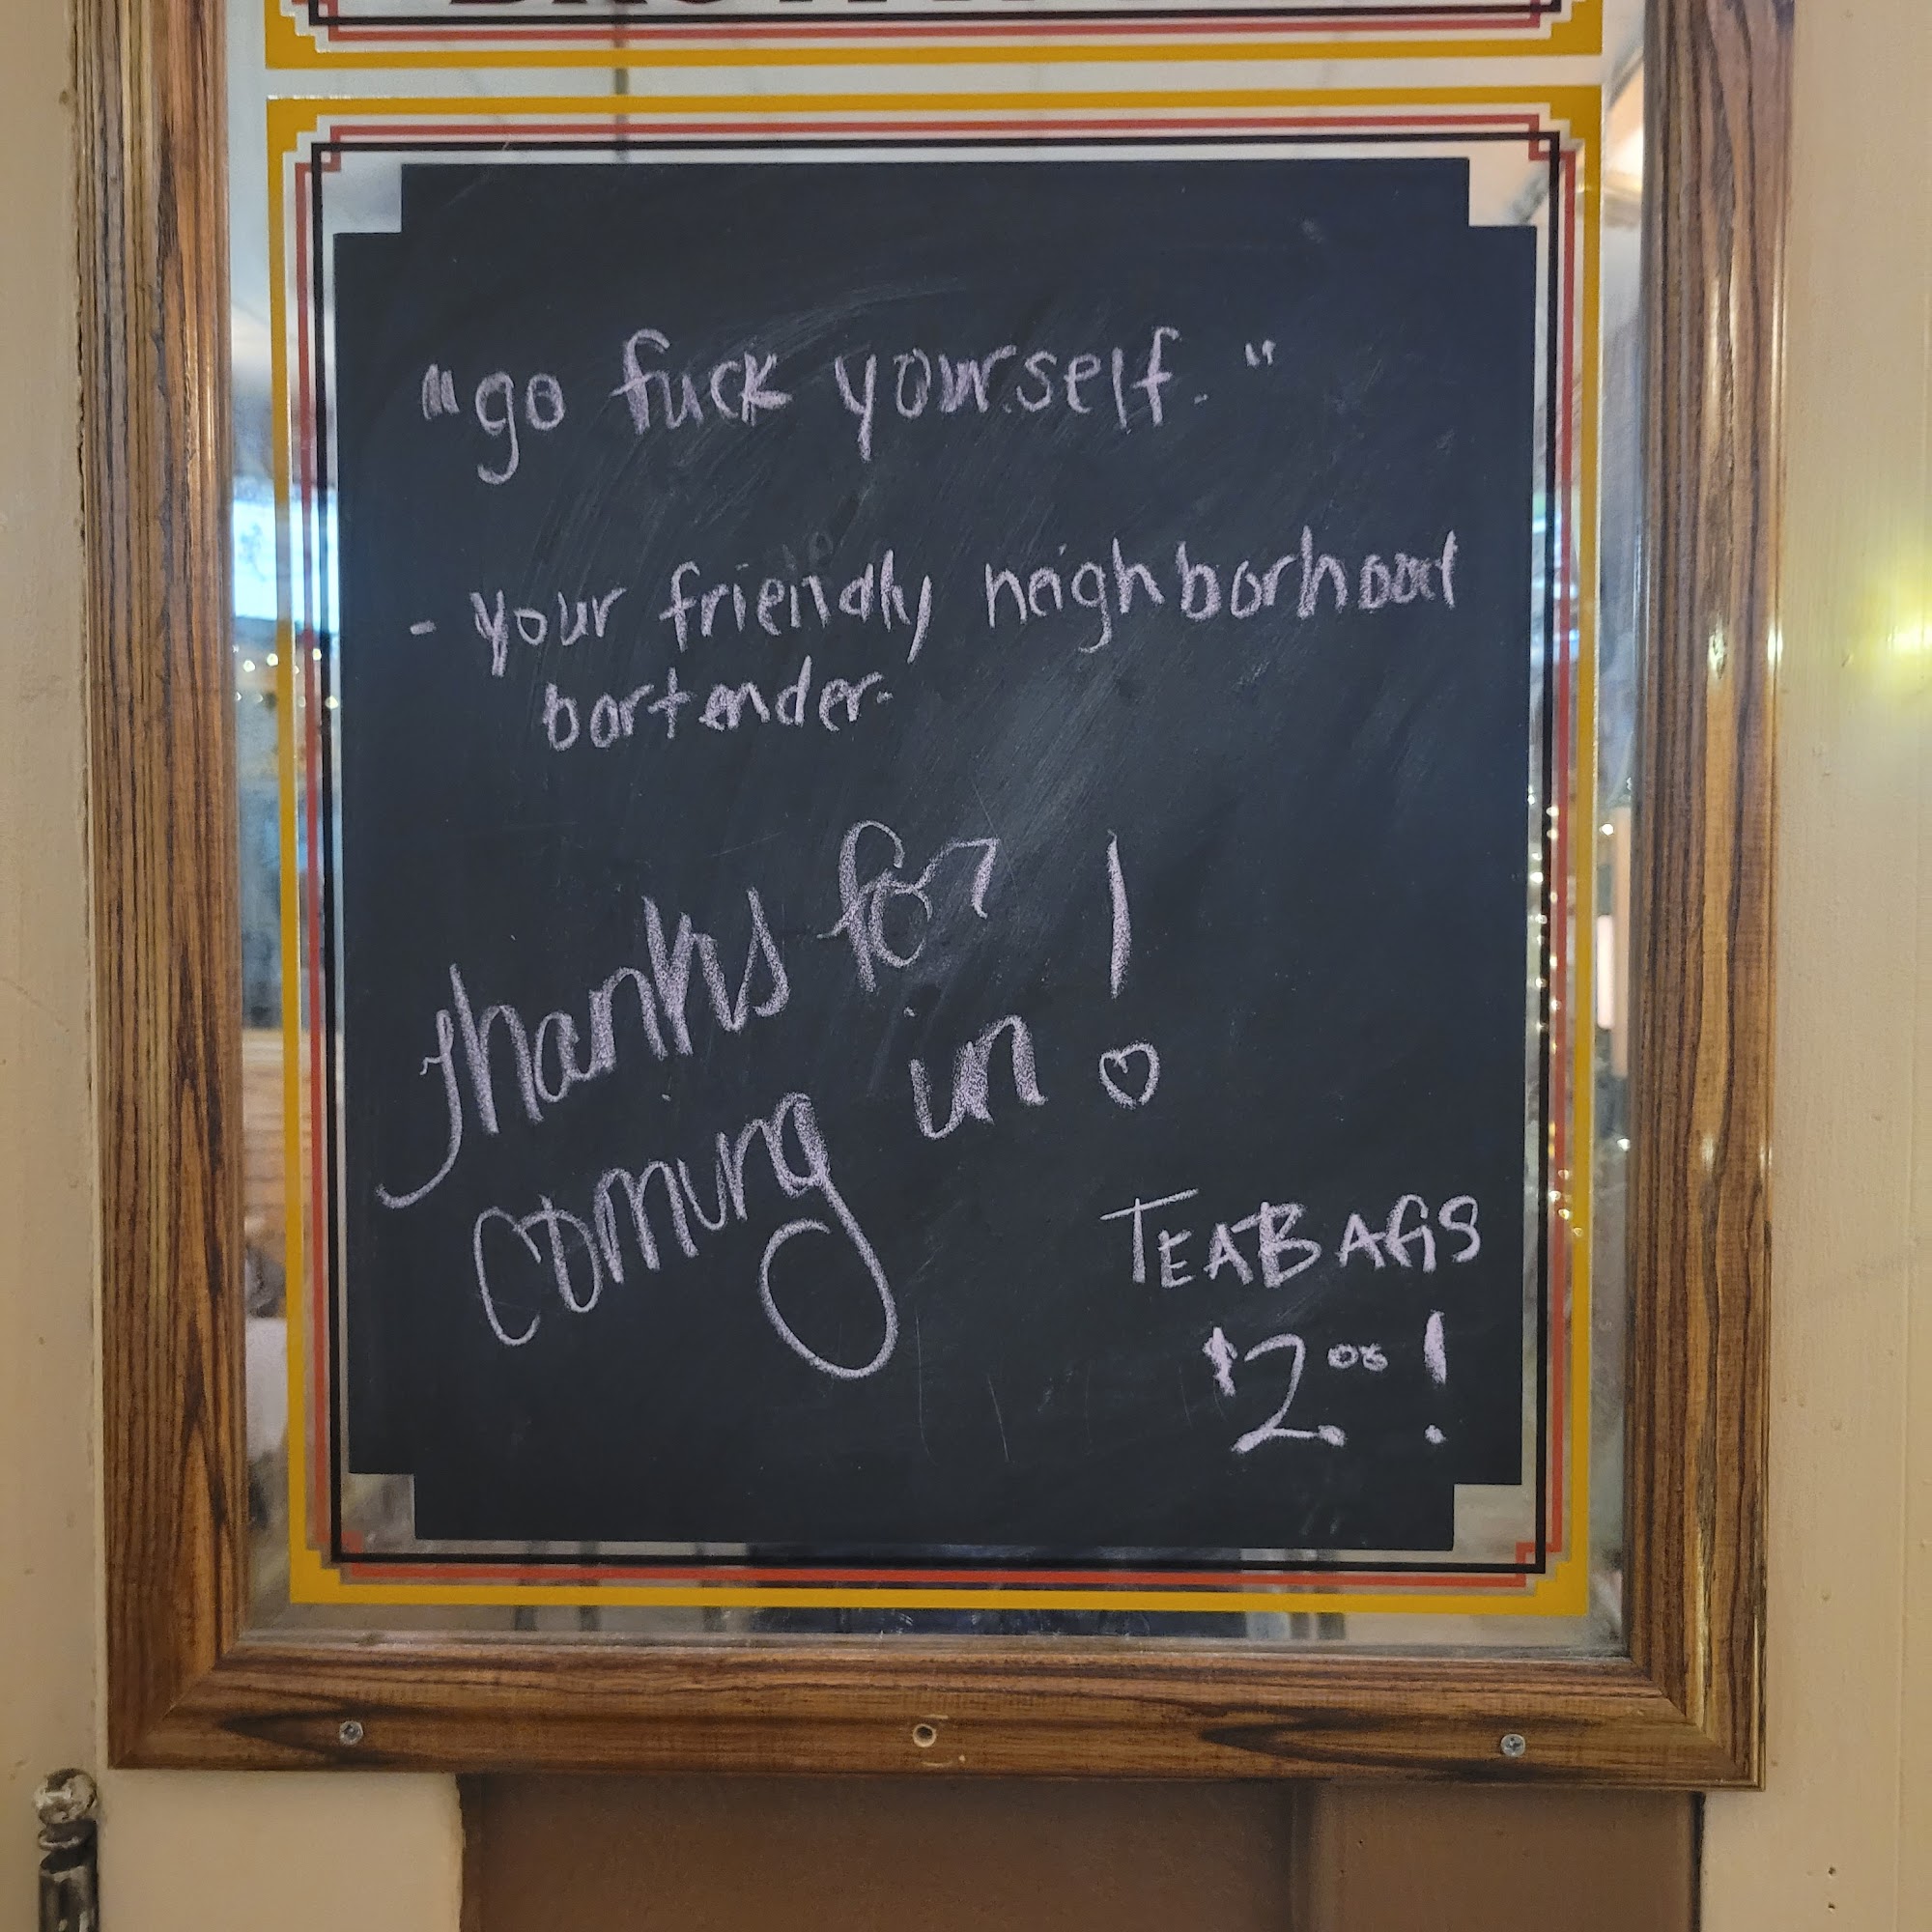 "go fuck yourself."
- your friendly neighborhood
bartender.
Thanks for
coming in!
TEABAGS
$2.00!